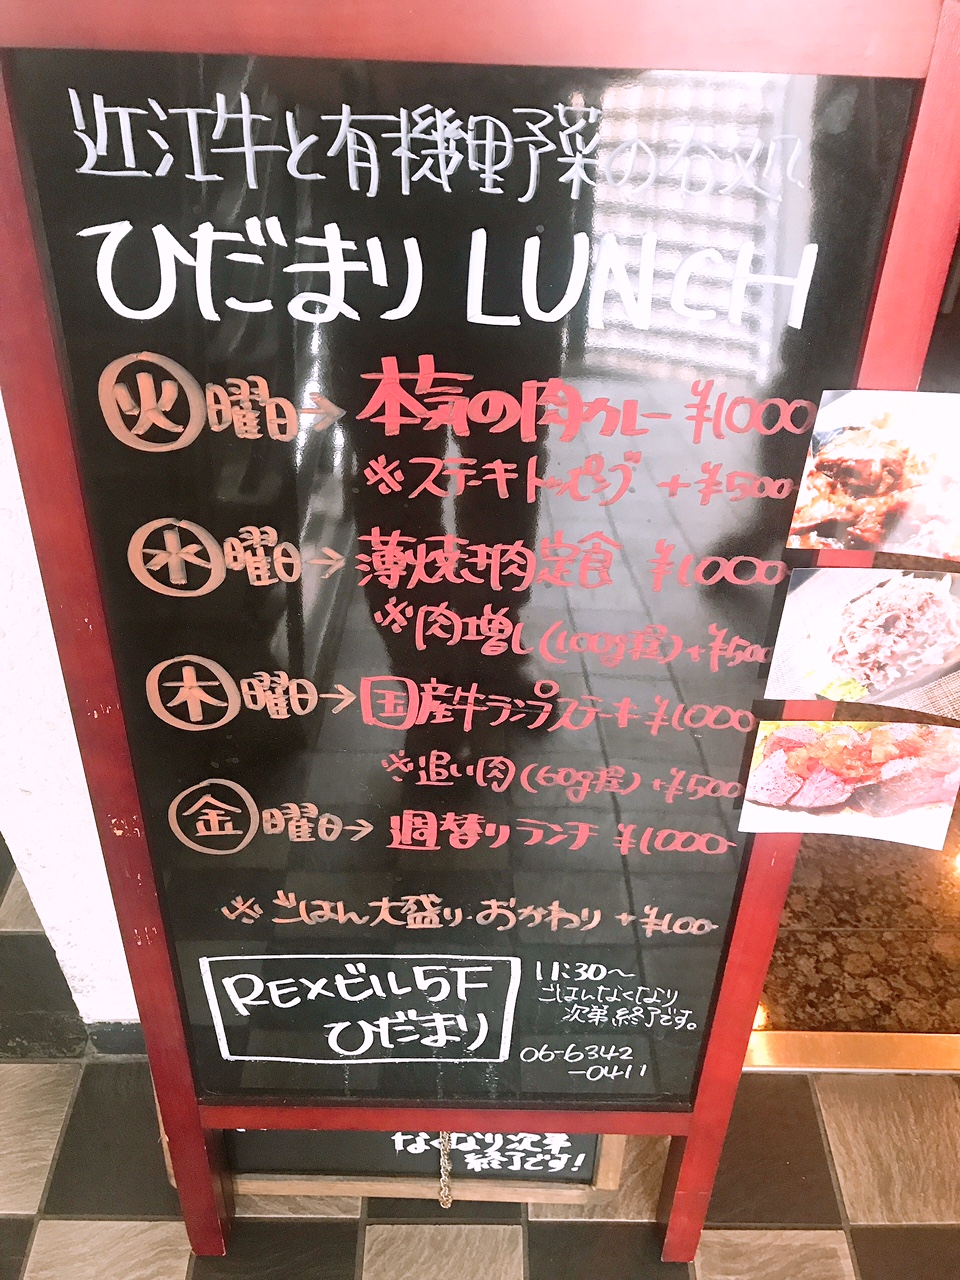 近江牛と有機野菜のお処
ひだまり LUNCH
火曜日→ 本気の肉カレー ¥1000
※ステーキトッピング +¥500
水曜日→ 薄焼き肉定食 ¥1000
※肉増し(100g程)+¥500
木曜日→ 国産牛ランプステーキ ¥1000
※追い肉(60g程)+¥500
金曜日→ 週替りランチ ¥1000
※ごはん大盛り・おかわり +¥100
REXビル5F
ひだまり
11:30〜
ごはんなくなり
次第終了です。
06-6342
-0411
なくなり次第
終了です!